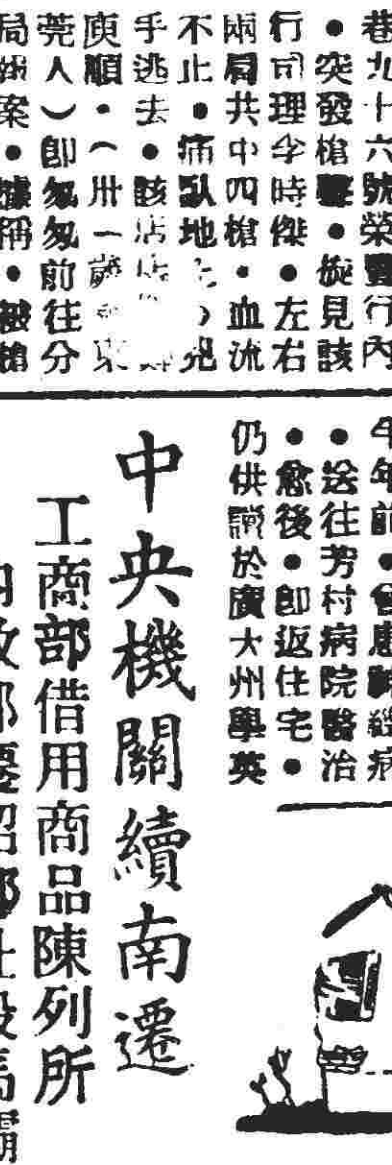 巷九十六號榮豐行內
●突發槍聲●旋見該
行司理李時傑●左右
兩局共中四槍●血流
不止●痛臥地 兇
乎逃去●該店
順●(卅一歲 東
莞人)即匆匆前往分
局 案●據稱●被槍
年前●曾患 病
●送往芳村病院醫治
●愈後●即返住宅●
仍供讀於廣大州學英
中央機關續南遷
工商部借用商品陳列所